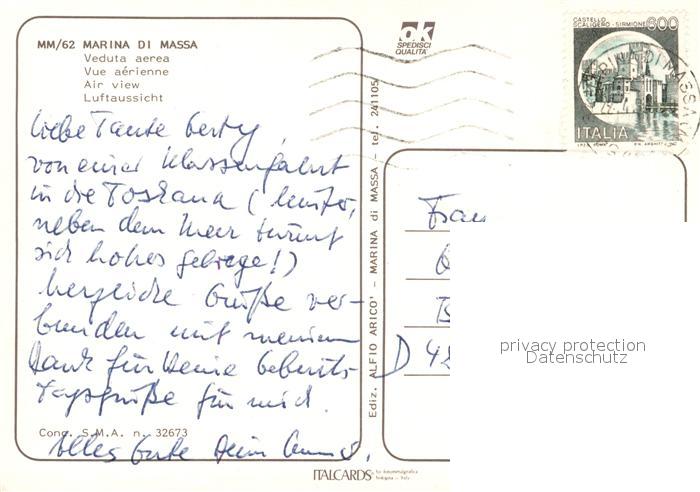 MM/62 MARINA DI MASSA
Veduta aerea
Vue aérienne
Air view
Luftaussicht
Liebe Tante Gerty,
von einer Klassenfahrt
in die Toskana (
neben dem Meer türmt
sich hohes Gebirge!)
herzliche Grüße ver-
bunden mit meinem
Dank für Deine Geburts-
tagsgrüße für mich.
Alles Gute Dein
Conc. S.M.A. n. 32673
Ediz. ALFIO ARICO' - MARINA di MASSA - tel. 241105
ok
SPEDISCI
QUALITA'
CASTELLO
SCALIGERO - SIRMIONE
600
ITALIA
MARINA DI MASSA
Frau
D
privacy protection
Datenschutz
ITALCARDS